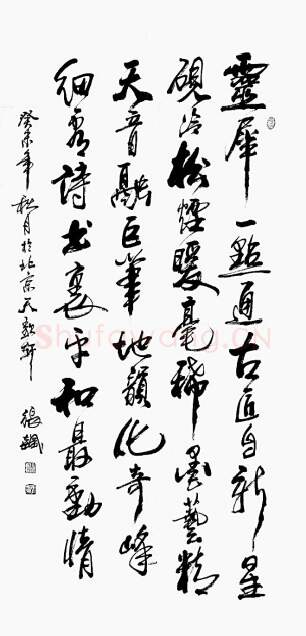 靈犀一點通古匠自新星
硯冷松煙暖毫稀墨藝精
天音融巨筆地韻化奇峰
細看詩書裏平和最動情
癸未年秋月於北京天歌軒
張飆
Shufawang.CN